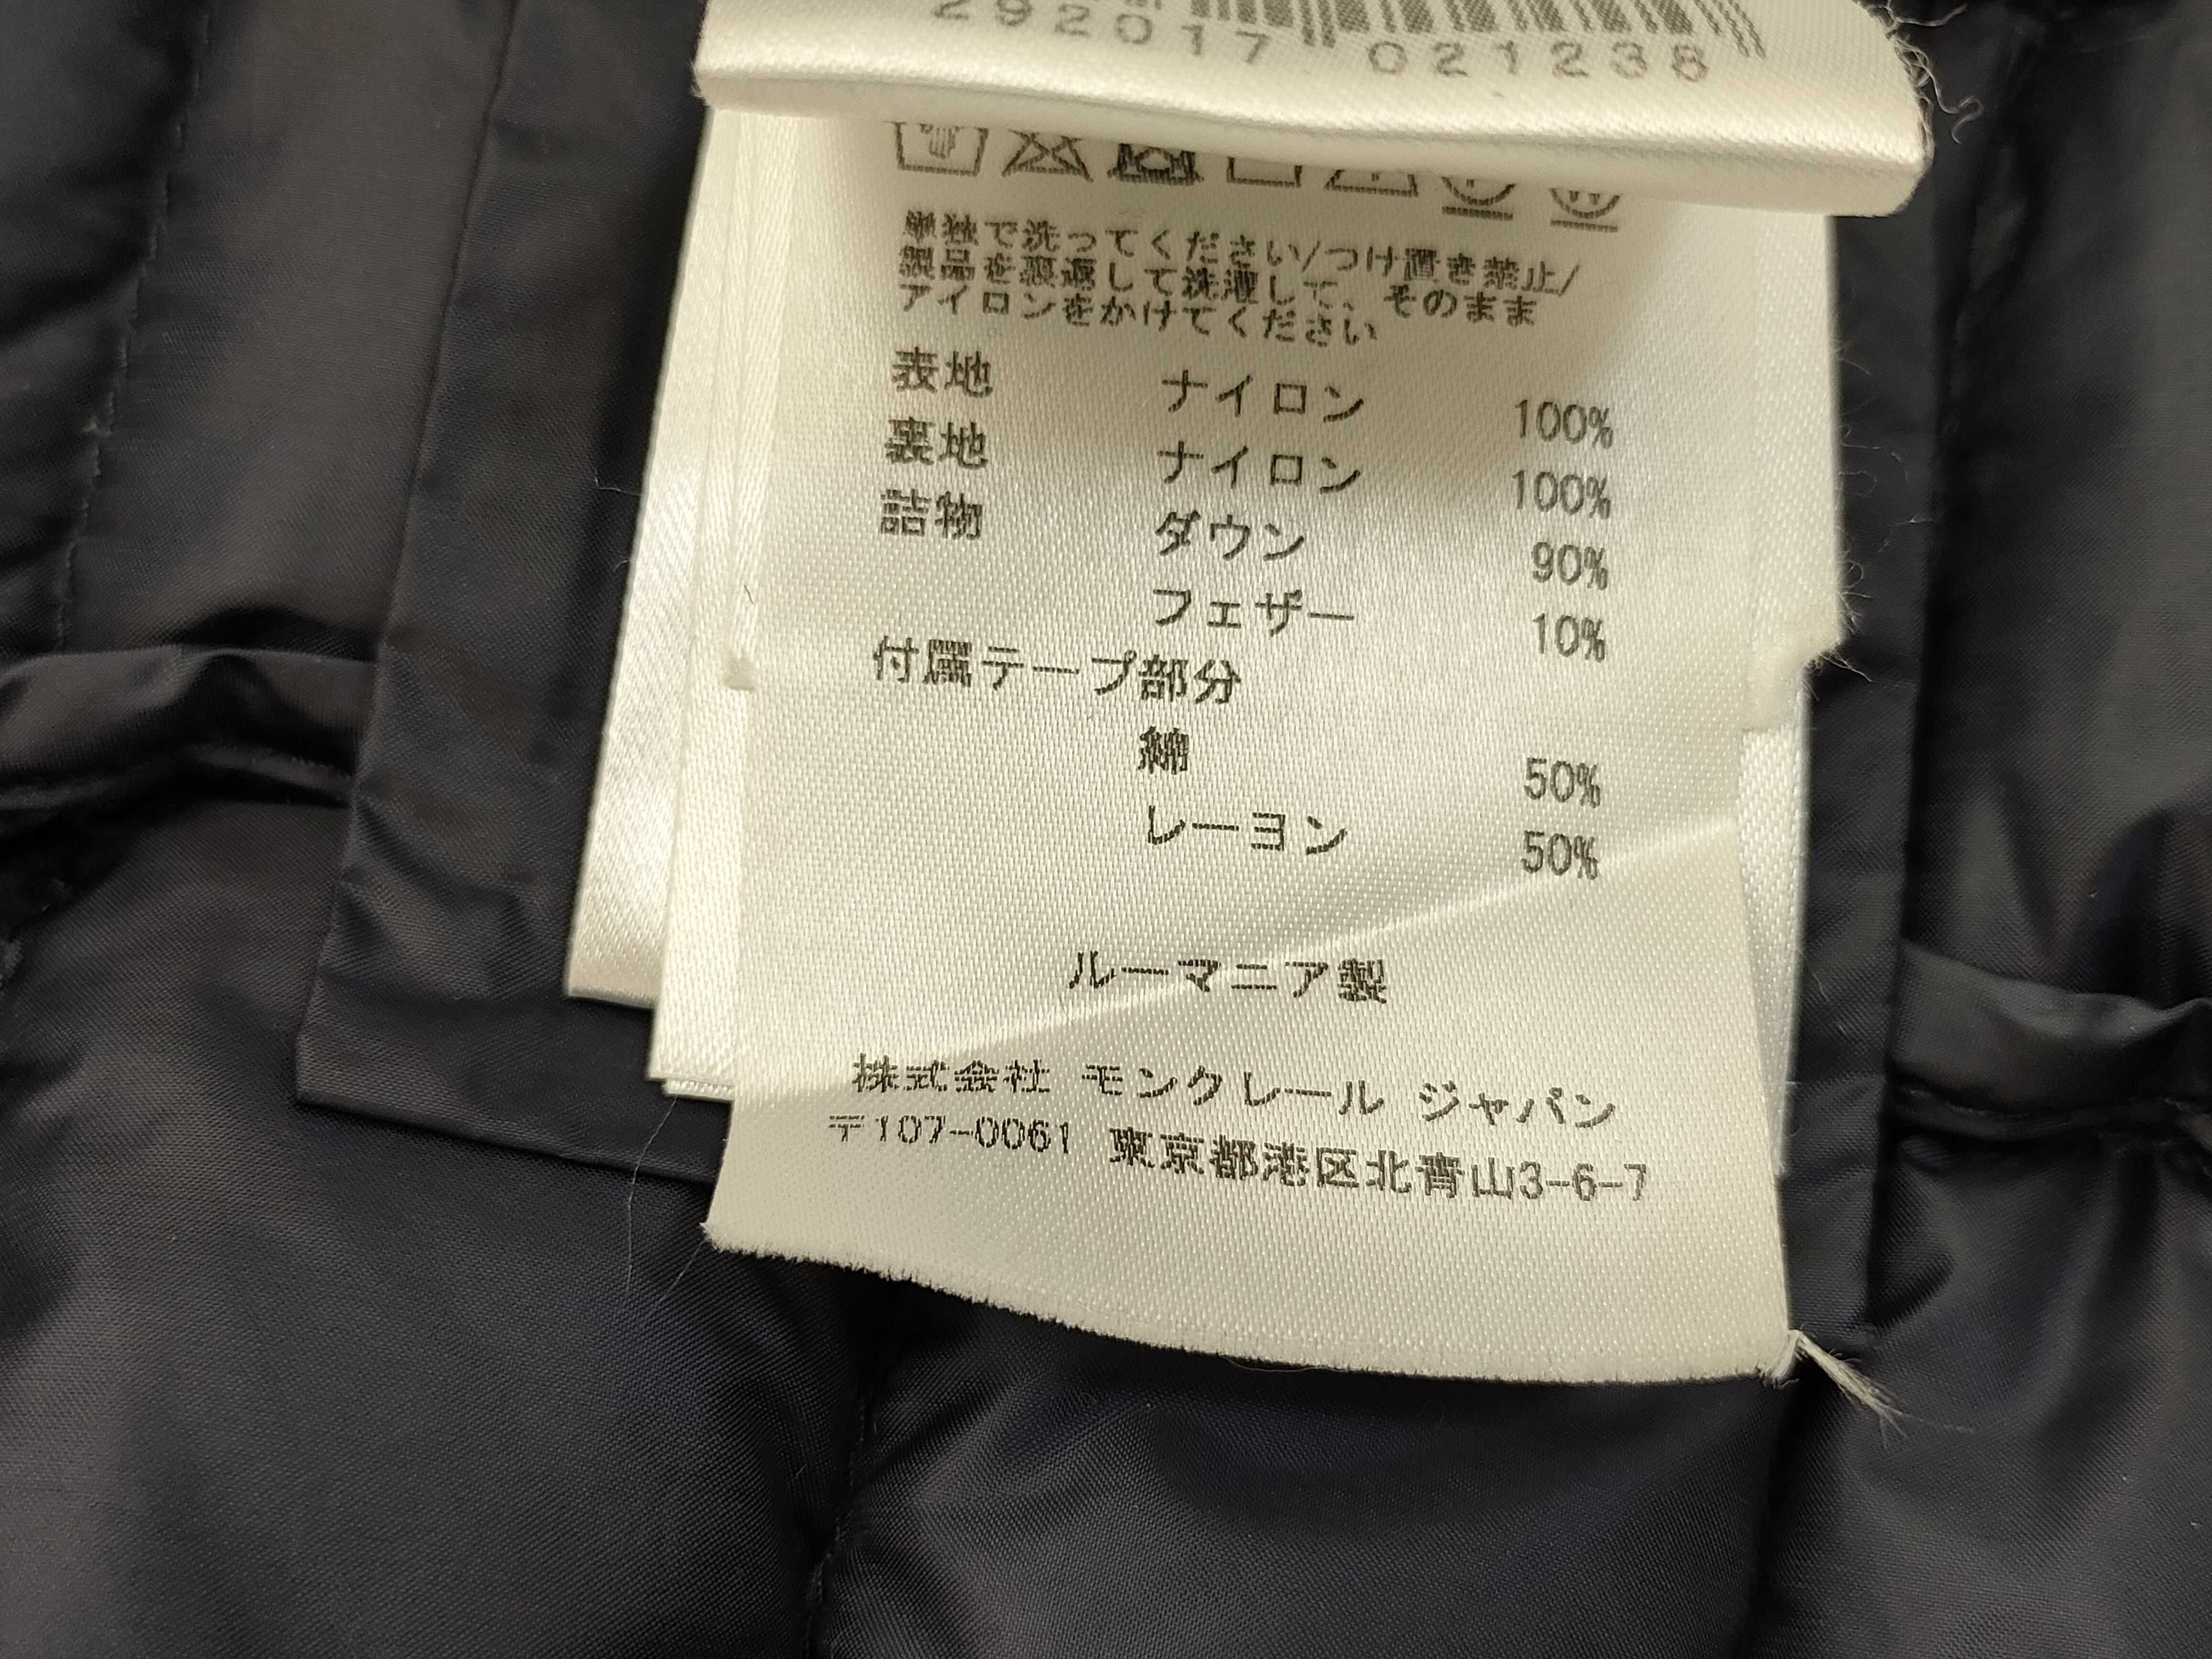 292017 021238
単独で洗ってください/つけ置き禁止/
製品を裏返して洗濯して、そのまま
アイロンをかけてください
表地 ナイロン 100%
裏地 ナイロン 100%
詰物 ダウン 90%
フェザー 10%
付属テープ部分
綿 50%
レーヨン 50%
ルーマニア製
株式会社 モンクレール ジャパン
〒107-0061 東京都港区北青山3-6-7